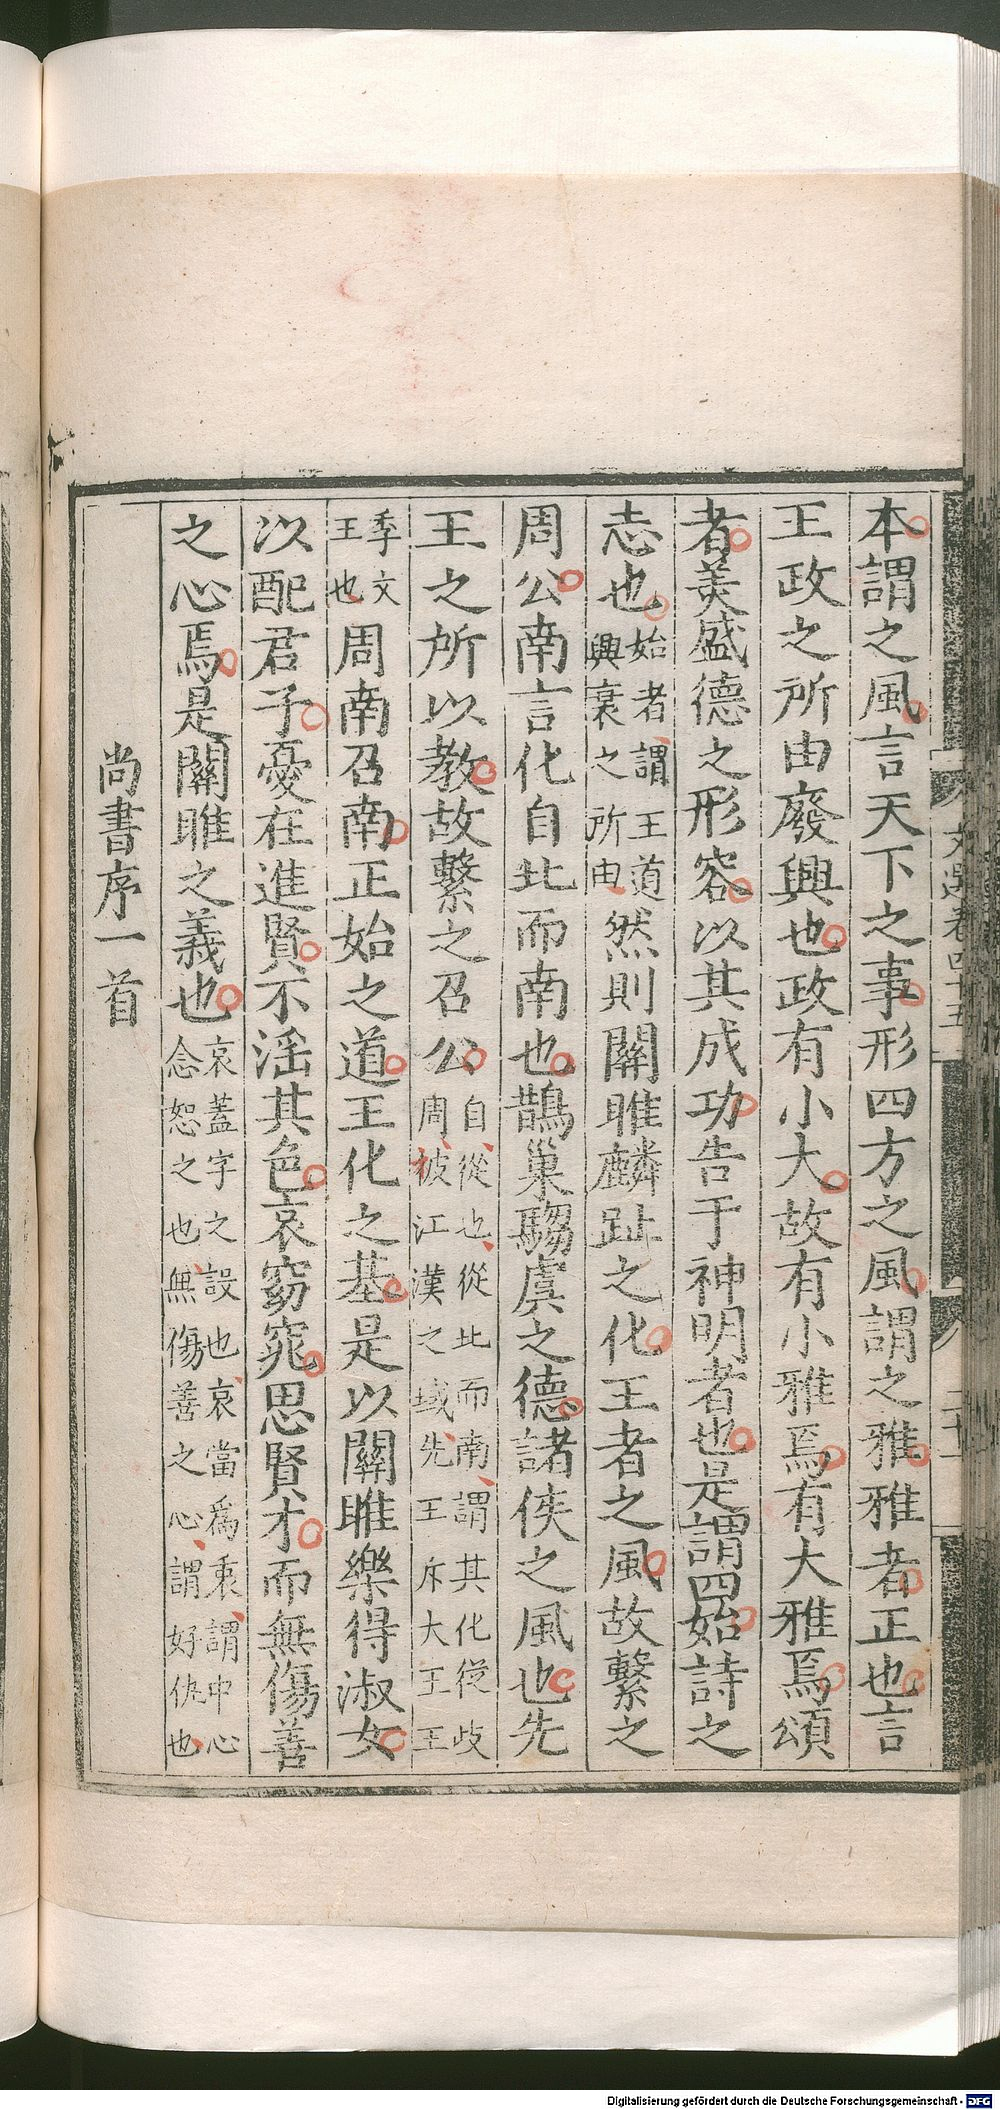 本謂之風言天下之事形四方之風謂之雅雅者正也言
王政之所由廢興也政有小大故有小雅焉有大雅焉頌
者美盛德之形容以其成功告于神明者也是謂四始詩之
志也始者謂王道興衰之所由然則關雎麟趾之化王者之風故繫之
周公南言化自北而南也鵲巢騶虞之德諸侯之風也先
王之所以教故繫之召公自從也從北而南謂其化從歧周被江漢之域先王斥大王王
季文王也周南召南正始之道王化之基是以關雎樂得淑女
以配君子憂在進賢不淫其色哀窈窕思賢才而無傷善
之心焉是關雎之義也哀蓋字之誤也哀當爲衷謂中心念恕之也無傷善之心謂好仇也
尚書序一首
文選卷四十五
二十一
Digitalisierung gefördert durch die Deutsche Forschungsgemeinschaft - DFG